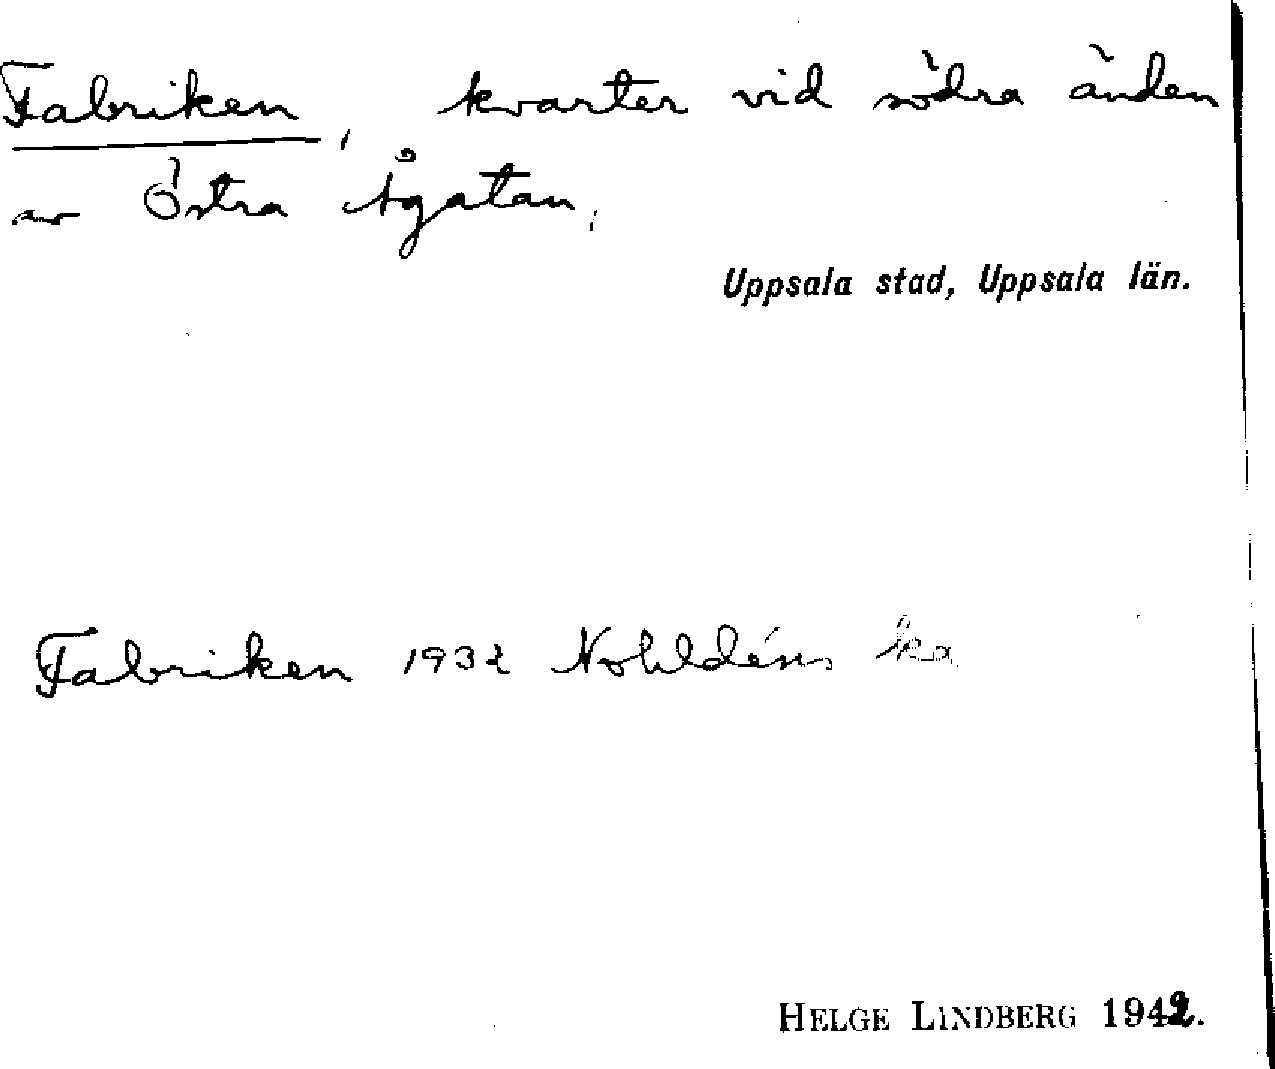 Fabriken, kvarter vid södra änden
av Östra Ågatan.
Uppsala stad, Uppsala län.
Fabriken 1932 Nohldéns ka
HELGE LINDBERG 1942.